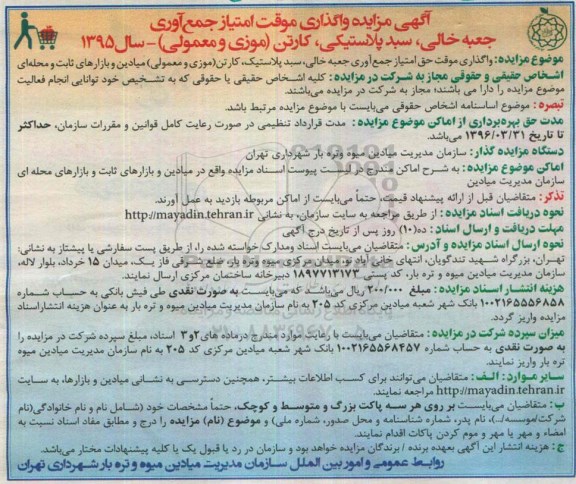 آگهی مزایده واگذاری موقت امتیاز جمع‌آوری
جعبه خالی، سبد پلاستیکی، کارتن (موزی و معمولی) - سال ۱۳۹۵
موضوع مزایده: واگذاری موقت حق امتیاز جمع آوری جعبه خالی، سبد پلاستیک، کارتن (موزی و معمولی) میادین و بازارهای ثابت و محله‌ای
اشخاص حقیقی و حقوقی مجاز به شرکت در مزایده: کلیه اشخاص حقیقی یا حقوقی که به تشخیص خود توانایی انجام فعالیت
موضوع مزایده را دارا می باشند؛ مجاز به شرکت در مزایده می‌باشند.
تبصره: موضوع اساسنامه اشخاص حقوقی می‌بایست با موضوع مزایده مرتبط باشد.
مدت حق بهره‌برداری از اماکن موضوع مزایده: مدت قرارداد تنظیمی در صورت رعایت کامل قوانین و مقررات سازمان، حداکثر
تا تاریخ ۱۳۹۶/۰۳/۳۱ می‌باشد.
دستگاه مزایده گذار: سازمان مدیریت میادین میوه و تره بار شهرداری تهران
اماکن موضوع مزایده: به شرح اماکن مندرج در لیست پیوست اسناد مزایده واقع در میادین و بازارهای ثابت و بازارهای محله ای
سازمان مدیریت میادین
تذکر: متقاضیان قبل از ارائه پیشنهاد قیمت، حتماً می‌بایست از اماکن مربوطه بازدید به عمل آورند.
نحوه دریافت اسناد مزایده: از طریق مراجعه به سایت سازمان، به نشانی http://mayadin.tehran.ir
مهلت دریافت و ارسال اسناد: ده (۱۰) روز پس از تاریخ درج آگهی
نحوه ارسال اسناد مزایده و آدرس: متقاضیان می‌بایست اسناد و مدارک خواسته شده را، از طریق پست سفارشی یا پیشتاز به نشانی:
تهران، بزرگراه شهید تندگویان، انتهای خانی آباد نو، میدان مرکزی میوه و تره بار، ضلع شرقی فاز یک، میدان ۱۵ خرداد، بلوار لاله،
سازمان مدیریت میادین میوه و تره بار، کد پستی ۱۸۹۷۷۱۳۱۷۳ دبیرخانه ساختمان مرکزی ارسال نمایند.
هزینه انتشار اسناد مزایده: مبلغ ۲۰۰/۰۰۰ ریال می‌باشد، که می‌بایست به صورت نقدی طی فیش بانکی به حساب شماره
۱۰۰۲۱۶۵۵۵۶۸۵۸ بانک شهر شعبه میادین مرکزی کد ۲۰۵ به نام سازمان مدیریت میادین میوه و تره بار به عنوان هزینه انتشار اسناد
مزایده واریز گردد.
میزان سپرده شرکت در مزایده: متقاضیان می‌بایست با رعایت موارد مندرج در ماده های ۲ و ۳ اسناد، مبلغ سپرده شرکت در مزایده را
به صورت نقدی به حساب شماره ۱۰۰۲۱۶۵۵۶۸۴۵۷ بانک شهر شعبه میادین مرکزی کد ۲۰۵ به نام سازمان مدیریت میادین میوه و
تره بار واریز نمایند.
سایر موارد: الف: متقاضیان می‌توانند برای کسب اطلاعات بیشتر، همچنین دسترسی به نشانی میادین و بازارها، به سایت
http://mayadin.tehran.ir مراجعه نمایند.
ب: متقاضیان می‌بایست بر روی هر سه پاکت بزرگ و متوسط و کوچک، حتماً مشخصات خود (شامل نام و نام خانوادگی (نام
شرکت/موسسه/...)، نام پدر، شماره شناسنامه و محل صدور، شماره ملی) و موضوع (نام) مزایده را درج و مطابق مفاد اسناد نسبت به
امضاء و مهر یا مهر و موم کردن پاکات اقدام نمایند.
ج: هزینه انتشار این آگهی بعهده برنده / برندگان مزایده خواهد بود و سازمان در رد یا قبول یک یا کلیه پیشنهادات مختار می‌باشد.
روابط عمومی و امور بین الملل سازمان مدیریت میادین میوه و تره بار شهرداری تهران